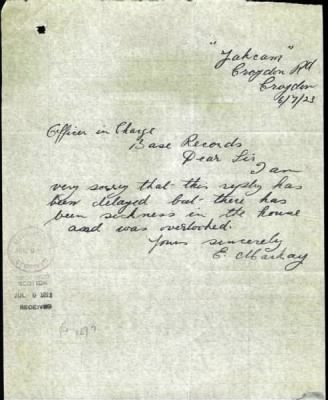 "Jahcam"
Croydon Rd
Croydon
6/7/23
Officer in Charge
Base Records
Dear Sir,
I am
very sorry that this reply has
been delayed but there has
been sickness in the house
and was overlooked.
Yours sincerely
E. Mackay
JUL 9
SECTION
RECEIVED